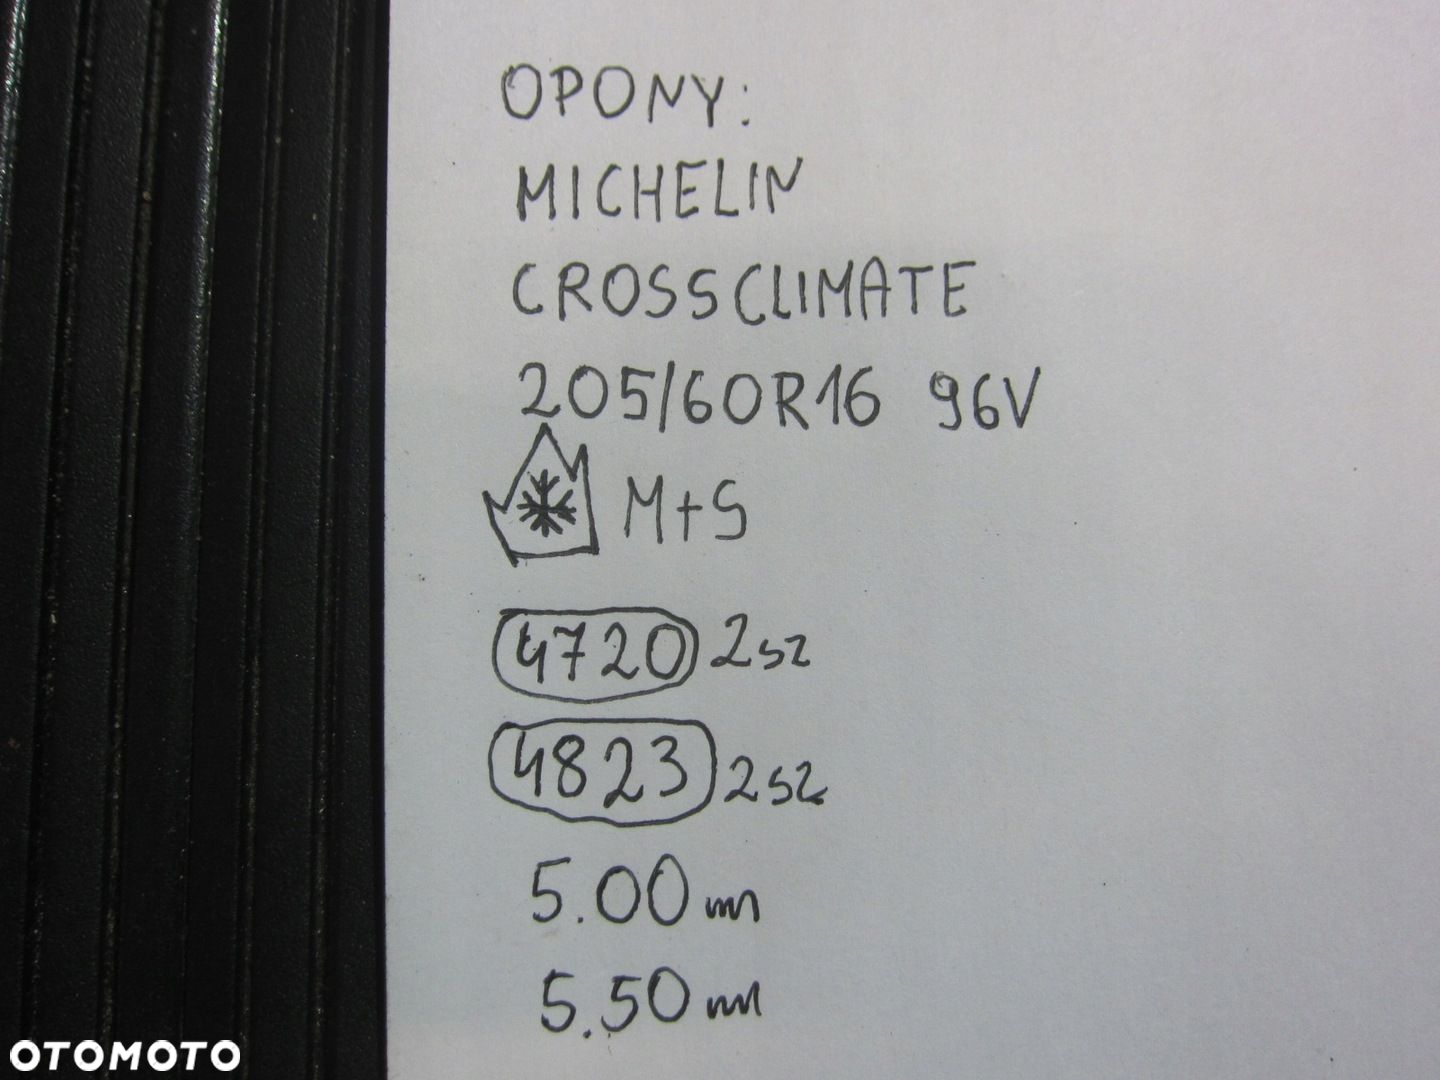 OPONY:
MICHELIN
CROSSCLIMATE
205/60R16 96V
M+S
4720 2sz
4823 2sz
5.00 mm
5.50 mm
OTOMOTO